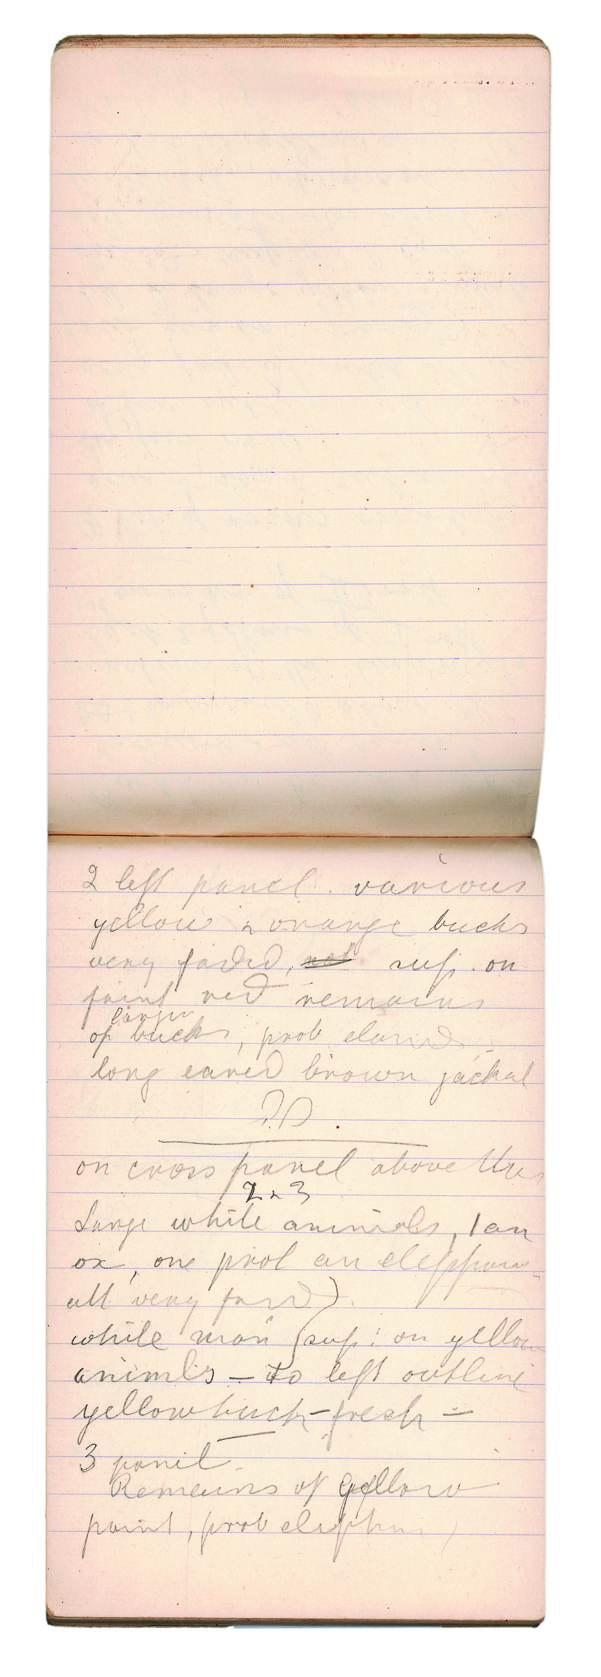 2 left panel. various
yellow & orange bucks
very faded, sup. on
faint red remains
larger
of bucks, prob elands
long eared brown jackal
on cross panel above this
2 & 3
Large white animals, 1 an
ox, one prob an elephant
all very faded
white man sup: on yellow
animals – to left outline
yellow buck – fresh –
3 panel
Remains of yellow
paint, prob elephant